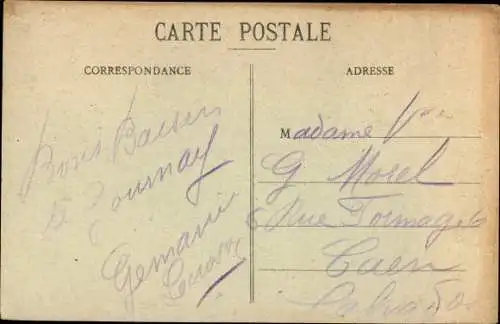 CARTE POSTALE
CORRESPONDANCE
ADRESSE
Bons Baisers
de Tournay
Germaine
Madame Vve
G Morel
Rue
Caen
Calvados